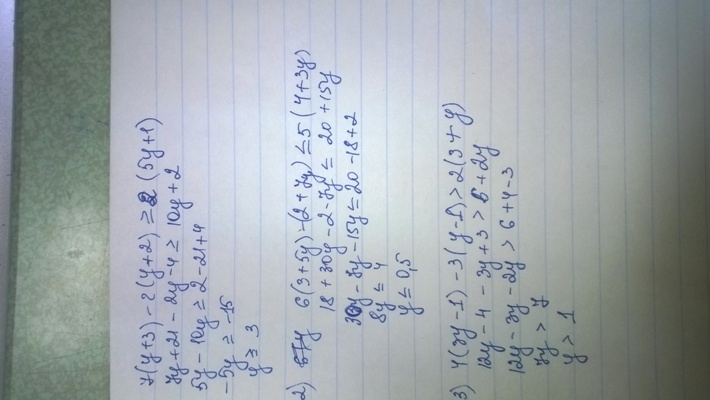 7(y+3)-2(y+2)≥2(5y+1)
7y+21-2y-4≥10y+2
5y-10y≥2-21+4
-5y≥-15
y≥3
2) 6(3+5y)-(2+7y)≤5(4+3y)
18+30y-2-7y≤20+15y
30y-7y-15y≤20-18+2
8y≤4
y≤0,5
3) 4(3y-1)-3(y-1)>2(3+y)
12y-4-3y+3>6+2y
12y-3y-2y>6+4-3
7y>7
y>1